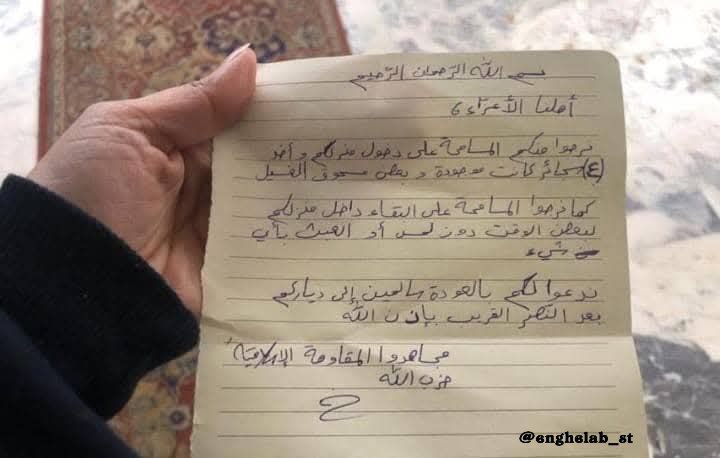 بسم الله الرّحمان الرّحيم
أهلنا الأعزّاء،
نرجوا منكم المسامحة على دخول منزلكم و أخذ
(٤) سجائر كانت موجودة و بعض مسحوق الغسيل
كما نرجوا المسامحة على البقاء داخل منزلكم
لبعض الوقت دون لمس أو العبث بأي
شيء
ندعوا لكم بالعودة سالمين إلى دياركم
بعد النصر القريب بإذن الله
مجاهدوا المقاومة الإسلامية
حزب الله
@enghelab_st